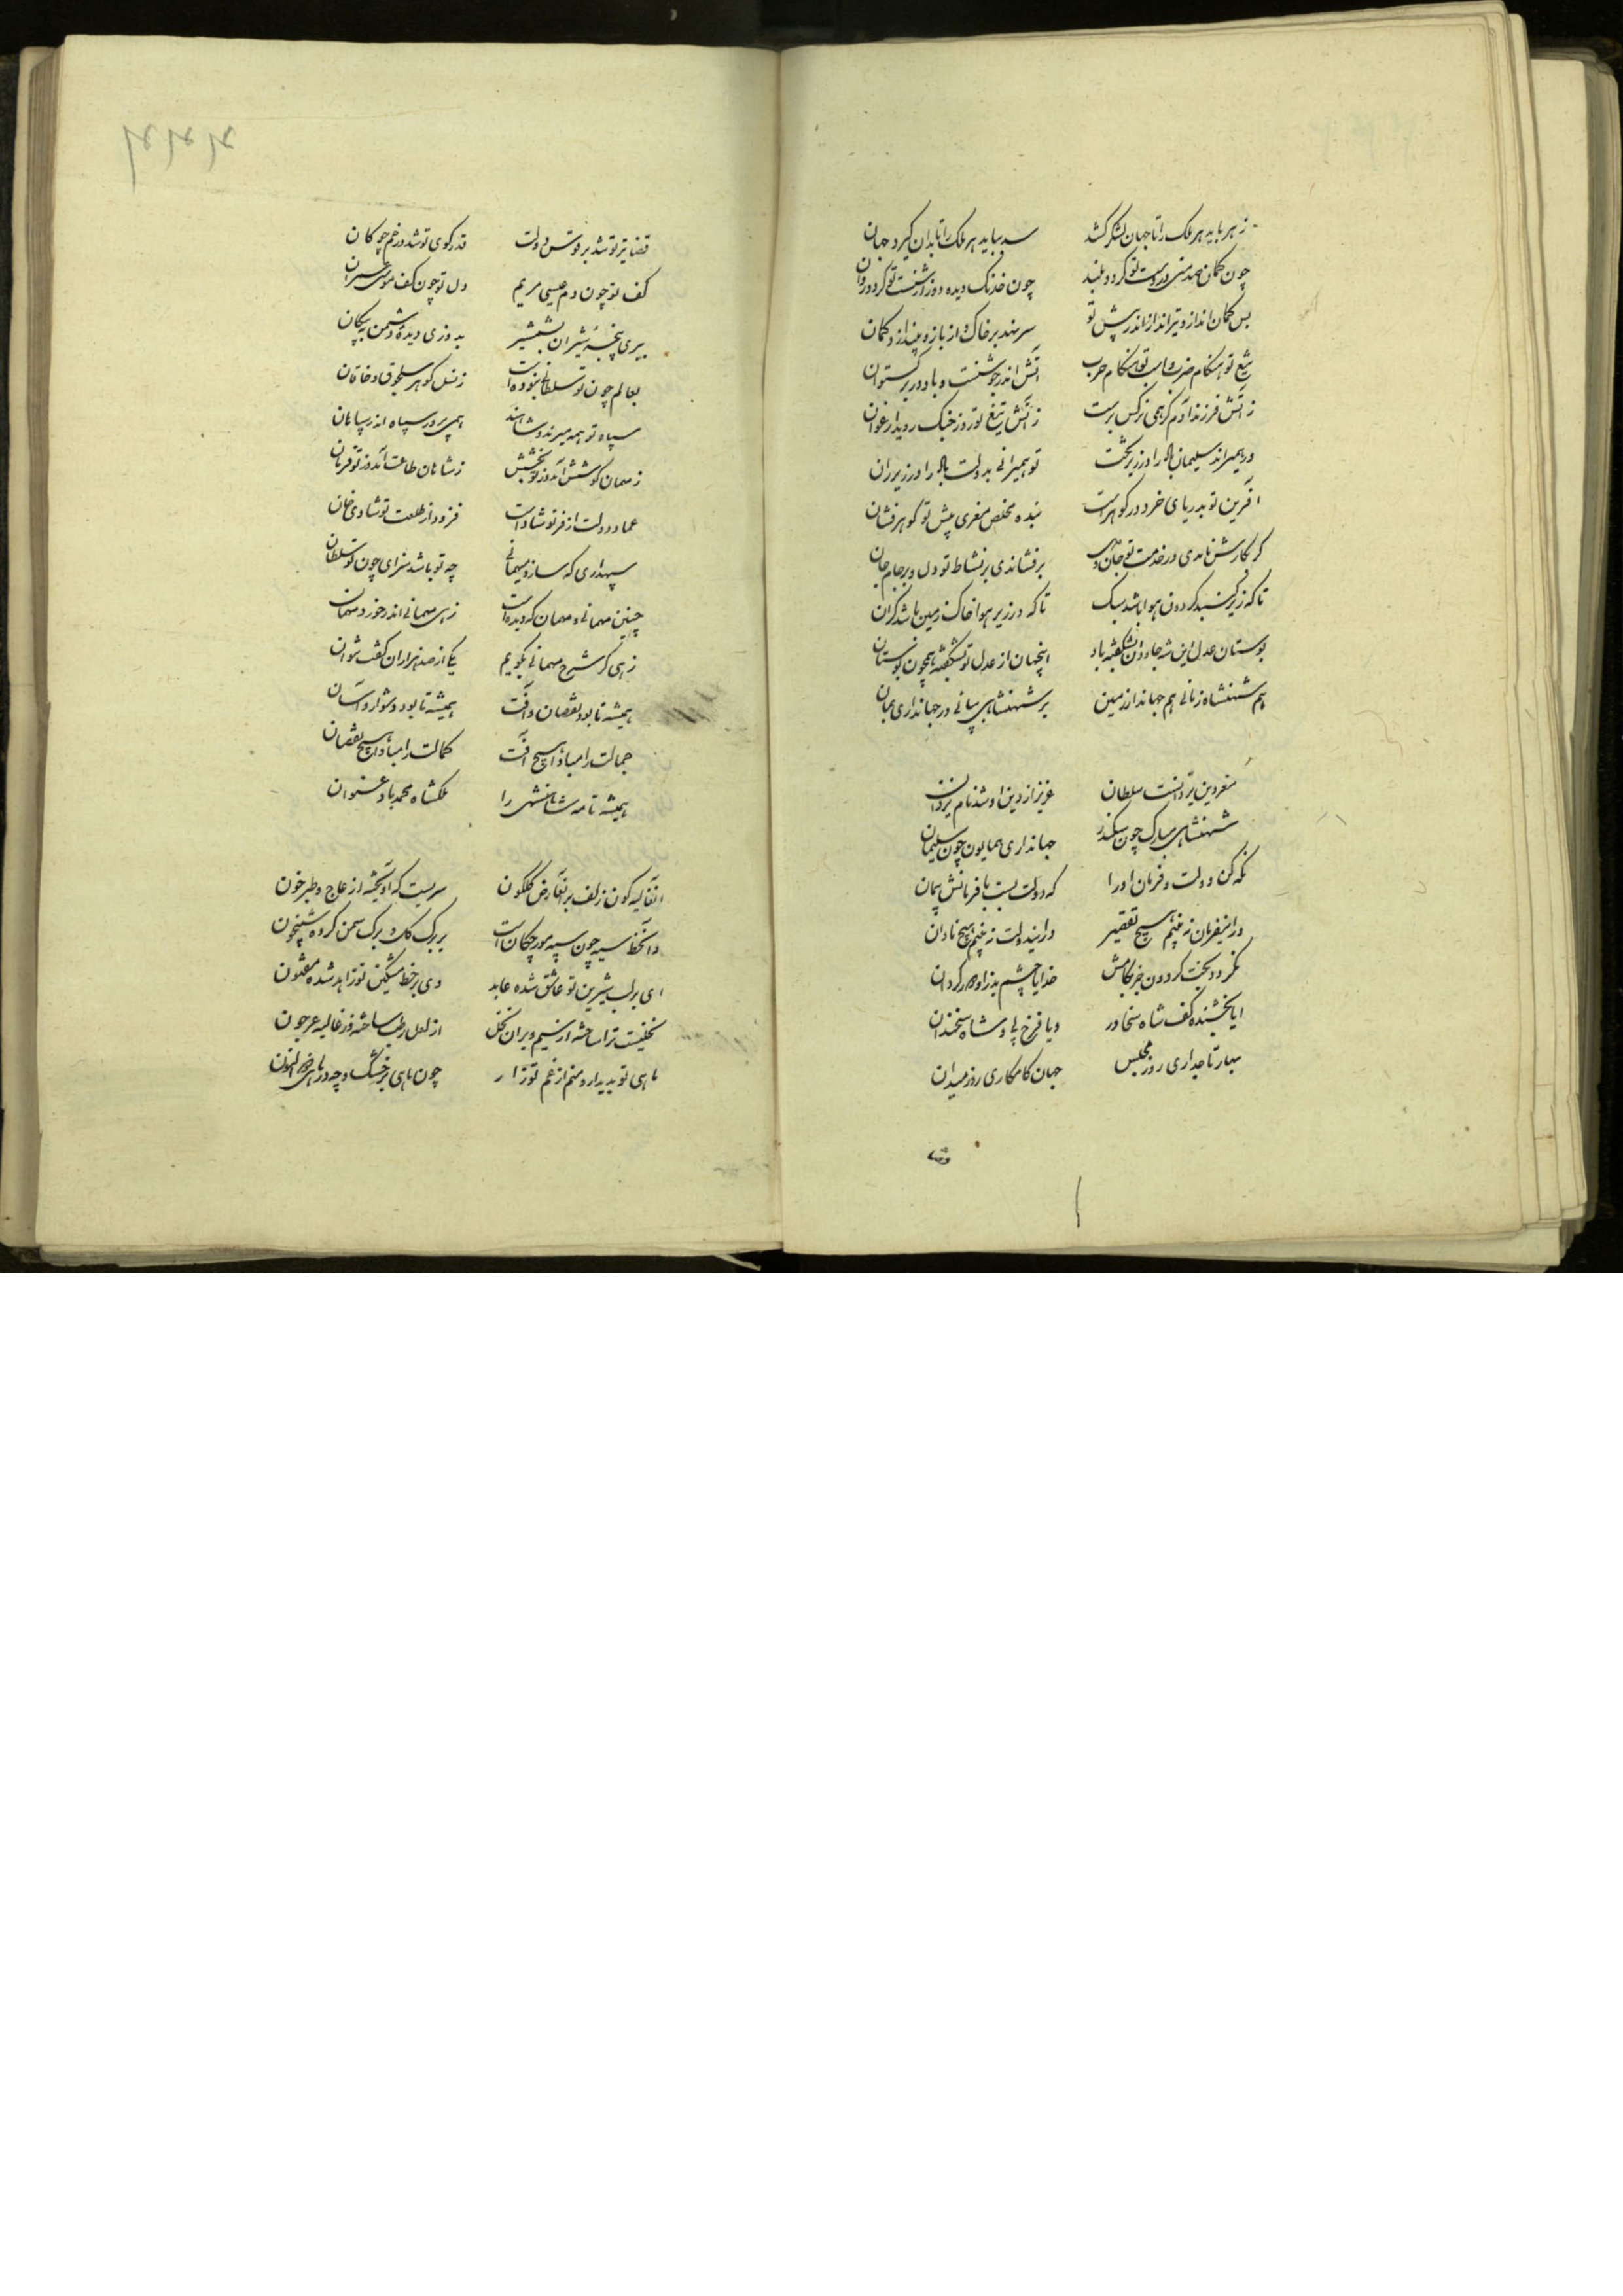 زهر باید هر ملک را تا جهان لشکر کشد سر بباید هر ملک را تا بدان گیرد جهان
چون کمان صد منی در دست تو گردد بلند چون خدنگ دیده دوز از شست تو گردد روان
بس کمان انداز و تیرانداز اندر پیش تو سر نهد بر خاک و از بازو بیندازد کمان
تیغ تو هنگام ضرب و اسب تو هنگام حرب آتش اندر جوشنست و باد در برگستوان
ز آتش فرزند آدم گر همی نرگس برست ز آتش تیغ تو روز جنگ روید ارغوان
ور همیراند سلیمان باد را در زیر تخت تو همیرانی بدولت باد را در زیر ران
آفرین تو بدریای خرد در گوهرست بنده مخلص معزی پیش تو گوهر فشان
گر بکارش نامدی در خدمت تو جان و دل برفشاندی بر نشاط تو دل و بر جام جان
تا که زیر گنبد گردون هوا باشد سبک تا که در زیر هوا خاک زمین باشد گران
بوستان عدل این شه جاودان بشکفته باد اینجهان از عدل تو بشکفته همچون بوستان
هم شهنشاه زمانی هم جهاندار زمین بر شهنشاهی بپائی در جهانداری بمان
معز دین یزدانست سلطان عزیز از دین او شد نام یزدان
شهنشاهی مبارک چون سکندر جهانداری همایون چون سلیمان
نگه کن دولت و فرمان او را که دولت بست با فرمانش پیمان
در اینفرمان نه بینم هیچ تقصیر در ایندولت نه بینم هیچ نادان
نگردد بخت گردون جز بکامش خدایا چشم بد زو دور گردان
ایا بخشنده کف شاه سخاور و یا فرخ پی و شاه سخندان
بهار تاجداری روز مجلس جهان کامکاری روز میدان
قضا تیر تو شد بر قوس دولت قدر گوی تو شد در خم چوگان
کف تو چون دم عیسی مریم دل تو چون کف موسی عمران
ببری پنجهٔ شیران بشمشیر بدوزی دیدهٔ دشمن به پیکان
بعالم چون تو سلطانی نبوده است ز نسل گوهر سلجوق و خاقان
سپاه تو همه میرند و شاهند همی پرور سپاه اندر سپاهان
ز مهمان کوشش آمد وز تو بخشش ز شاهان طاعت آمد وز تو فرمان
عماد دولت از فر تو شاد است فزود از طلعت تو شادی خان
سپهداری که سازد میهمانی چه تو باشد سزای چون تو سلطان
چنین مهمانی و مهمان که دیده است زهی مهمانی اندر خورد مهمان
زهی گر شرح مهمانی بگویم یکی از صد هزاران گفت نتوان
همیشه تا بود نقصان و آفت همیشه تا بود دشوار و آسان
جمالت را مبادا هیچ آفت کمالت را مبادا هیچ نقصان
همیشه نامه شاهنشهی را ملکشاه محمد باد عنوان
آنغالیه گون زلف بر آنعارض گلگون سریست که آویخته از عاج و طبرخون
و آنخط سیه چون سپه مورچگان است بر برگ گل و برگ سمن کرده شبیخون
ای بر لب شیرین تو عاشق شده عابد وی بر خط مشکین تو زاهد شده مفتون
نخلیست ترا ساخته از سیم و بر آن نخل از لعل رطب ساخته وز غالیه عرجون
ماهی تو بدیدار و منم از غم تو زار چون ماهی بر خشک و چه در ماهی ذوالنون